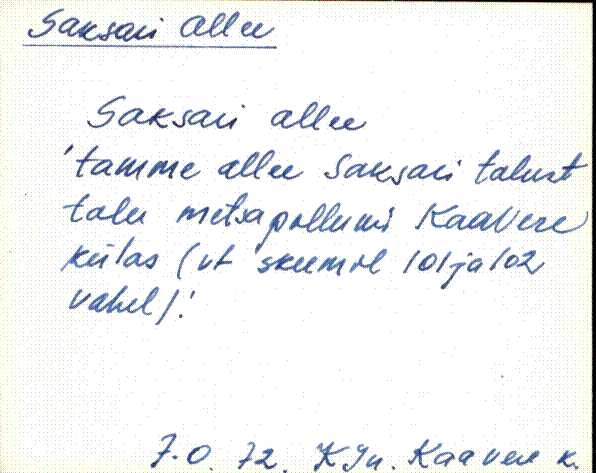 Saksari allee
Saksari allee
'tamme allee Saksari talust
talu metsapõlluni Kaavere
külas (vt skeemil 101 ja 102
vahel)!
7.0. 72. KJn. Kaavere k.